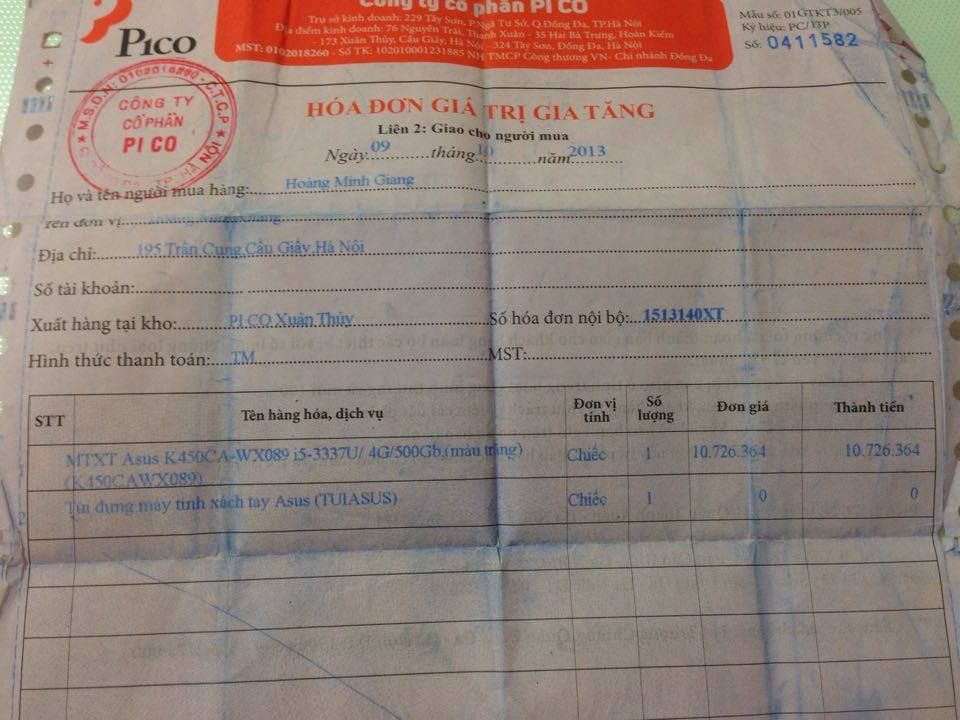 Pico
Công ty cổ phần PI CO
Trụ sở kinh doanh: 229 Tây Sơn, P.Ngã Tư Sở, Q.Đống Đa, TP.Hà Nội
Địa điểm kinh doanh: 76 Nguyễn Trãi, Thanh Xuân - 35 Hai Bà Trưng, Hoàn Kiếm
173 Xuân Thủy, Cầu Giấy, Hà Nội - 324 Tây Sơn, Đống Đa, Hà Nội
MST: 0102018260 - Số TK: 102010001231885 NH TMCP Công thương VN- Chi nhánh Đống Đa
Mẫu số: 01GTKT3/005
Ký hiệu: PC/13P
Số: 0411582
M.S.D.N: 0102018260 - C.T.C.P
CÔNG TY
CỔ PHẦN
PI CO
TP. HÀ NỘI
HÓA ĐƠN GIÁ TRỊ GIA TĂNG
Liên 2: Giao cho người mua
Ngày 09 tháng 10 năm 2013
Họ và tên người mua hàng: Hoàng Minh Giang
Tên đơn vị:
Địa chỉ: 195 Trần Cung,Cầu Giấy,Hà Nội
Số tài khoản:
Xuất hàng tại kho: PI CO Xuân Thủy Số hóa đơn nội bộ: 1513140XT
Hình thức thanh toán: TM MST:
STT Tên hàng hóa, dịch vụ Đơn vị tính Số lượng Đơn giá Thành tiền
MTXT Asus K450CA-WX089 i5-3337U/ 4G/500Gb,(màu trắng) Chiếc 1 10.726.364 10.726.364
(K450CAWX089)
Túi đựng máy tính xách tay Asus (TUIASUS) Chiếc 1 0 0